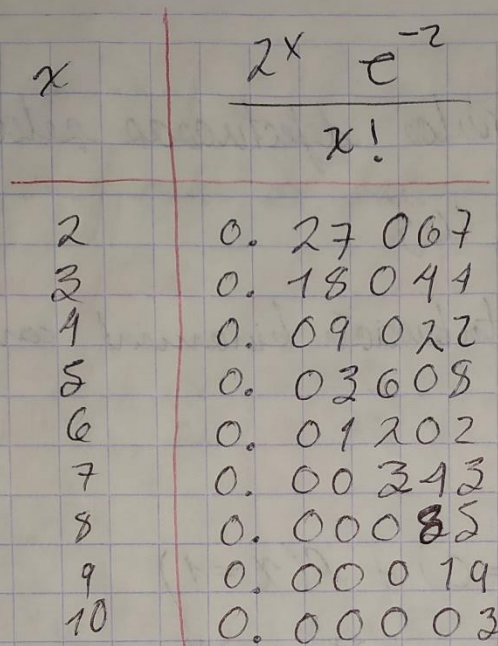 x 2^x e^-2
x!
2 0.27067
3 0.18044
4 0.09022
5 0.03608
6 0.01202
7 0.00343
8 0.00085
9 0.00019
10 0.00003